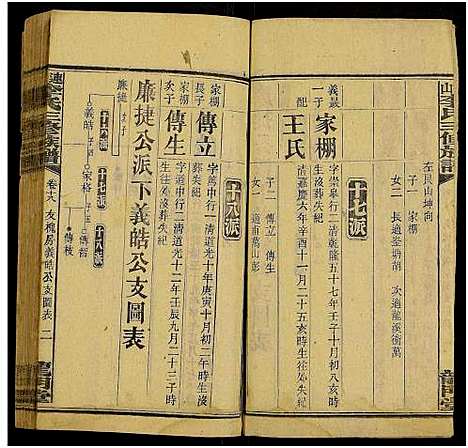 山李氏三修族譜
龍門堂
左艮山坤向
子二 長適荃塘胡 次適龍溪衛萬
女二
十七派
義最
一子 家棚
字崇泉行二清乾隆五十七年壬子十月初八亥時
生沒葬失紀
配 王氏
清嘉慶六年辛酉十一月二十五亥時生往外失紀
子二 傳立 傳生
女一 適南萬山彭
十八派
家棚
長子 傳立
字 行一清道光十年庚寅十月初二辰時生沒
葬失紀
家棚
次子 傳生
字道申行二清道光十二年壬辰九月二十三子時
生往外失紀
廉捷公派下義皓公支圖表
廉捷
次子
十六派
義皓
十七派
家格
十八派
傳哲
傳枝
連李氏三修族譜
卷十八 友槐房義皓公支圖表 二
龍門堂